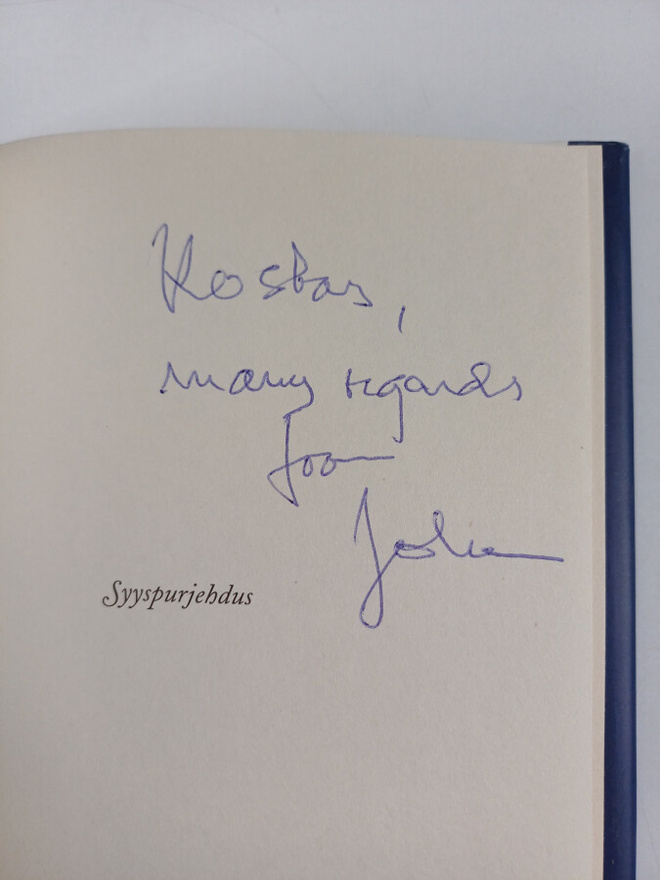 Kostas,
many regards
from
Johan
Syyspurjehdus